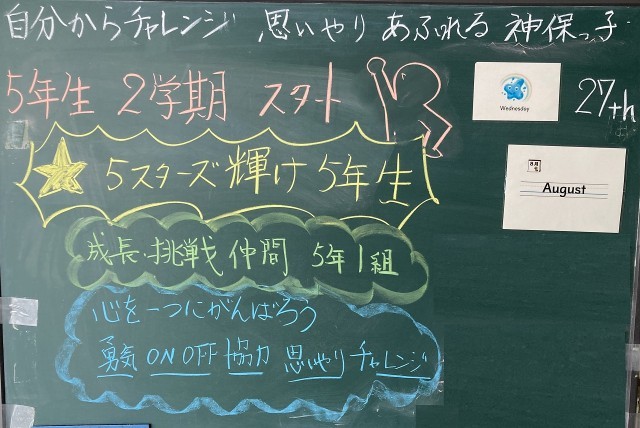 自分からチャレンジ 思いやり あふれる 神保っ子
5年生 2学期 スタート
Wednesday
27th
August
5スターズ 輝け 5年生
成長・挑戦 仲間 5年1組
心を一つにがんばろう
勇気 ON OFF 協力 思いやり チャレンジ